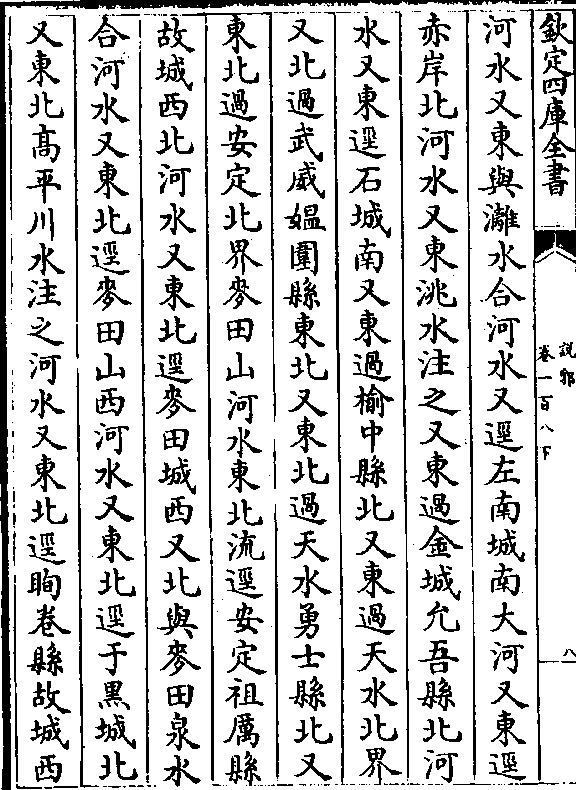 欽定四庫全書
說郛
卷一百八下
八
河水又東與灕水合河水又逕左南城南大河又東逕
赤岸北河水又東洮水注之又東過金城允吾縣北河
水又東逕石城南又東過榆中縣北又東過天水北界
又北過武威媪圍縣東北又東北過天水勇士縣北又
東北過安定北界麥田山河水東北流逕安定祖厲縣
故城西北河水又東北逕麥田城西又北與麥田泉水
合河水又東北逕麥田山西河水又東北逕于黑城北
又東北高平川水注之河水又東北逕眴卷縣故城西